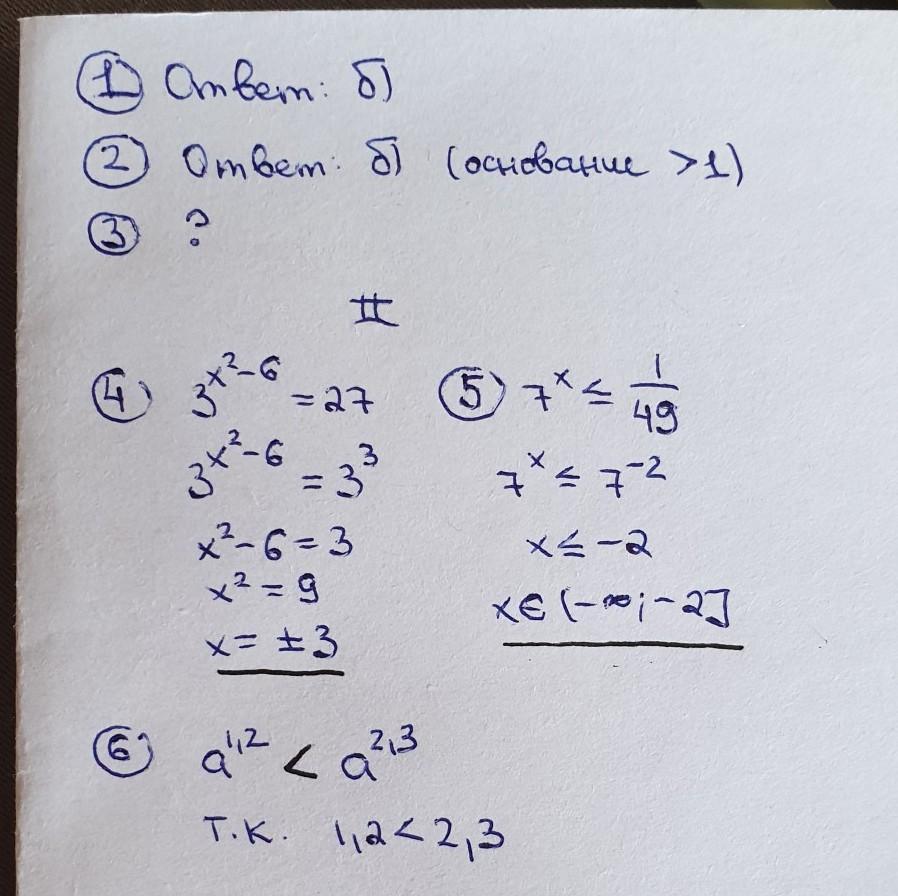 ① Ответ: б)
② Ответ: б) (основание >1)
③ ?
II
④ 3^(x²-6) = 27
3^(x²-6) = 3³
x²-6=3
x²=9
x= ±3
⑤ 7^x ≤ 1/49
7^x ≤ 7^(-2)
x≤ -2
x∈ (-∞; -2]
⑥ a^(1,2) < a^(2,3)
Т.К. 1,2<2,3